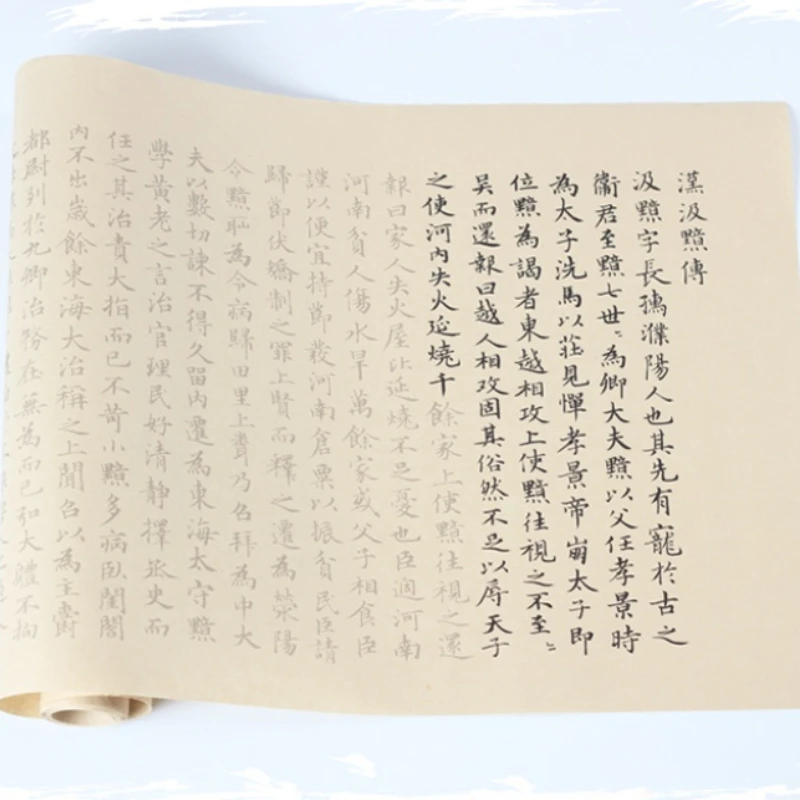 漢汲黯傳
汲黯字長孺濮陽人也其先有寵於古之
衛君至黯七世〻為卿大夫黯以父任孝景時
為太子洗馬以莊見憚孝景帝崩太子即
位黯為謁者東越相攻上使黯往視之不至〻
吳而還報曰越人相攻固其俗然不足以辱天子
之使河內失火延燒千餘家上使黯往視之還
報曰家人失火屋比延燒不足憂也臣過河南
河南貧人傷水旱萬餘家或父子相食臣
謹以便宜持節發河南倉粟以振貧民臣請
歸節伏矯制之罪上賢而釋之遷為滎陽
令黯恥為令病歸田里上聞乃召拜為中大
夫以數切諫不得久留內遷為東海太守黯
學黃老之言治官理民好清靜擇丞史而
任之其治責大指而已不苛小黯多病臥閨閤
內不出歲餘東海大治稱之上聞召以為主爵
都尉列於九卿治務在無為而已弘大體不拘